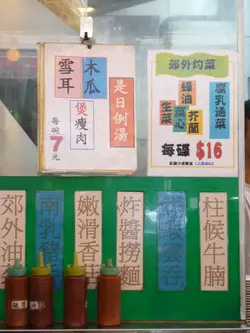 是日例湯
木瓜
雪耳
煲瘦肉
每碗7元
郊外灼菜
腐乳通菜
芥蘭
蠔油
菜心
生菜
每碟 $16
柱候牛腩
炸醬撈麵
嫩滑香
南乳豬
郊外油